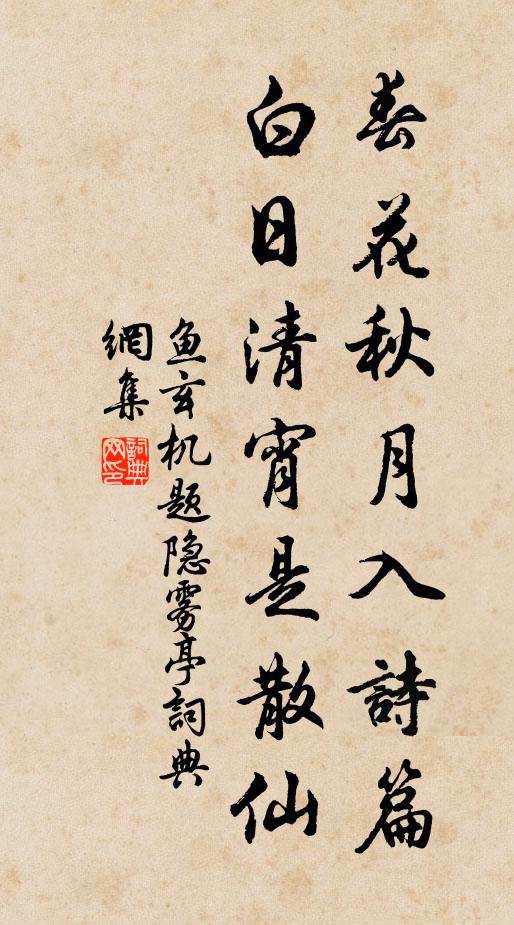 春花秋月入詩篇
白日清宵是散仙
鱼玄机题隐雾亭詞典
網集
詞典网印